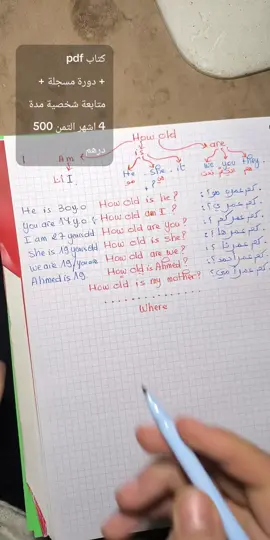 كتاب pdf
+ دورة مسجلة +
متابعة شخصية مدة
4 اشهر الثمن 500
درهم
How old
Am is are
I He she it we you they
أنا هو هي
?
He is 30 y.o How old is he? كم عمره هو؟
you are 14 y.o How old am I? كم عمري؟
I am 27 years old How old are you? كم عمركم؟
She is 19 years old How old is she? كم عمرها؟
we are 19 years How old are we?
Ahmed is 19 How old is Ahmed? كم عمر أحمد؟
How old is my mother? كم عمر أمي؟
Where